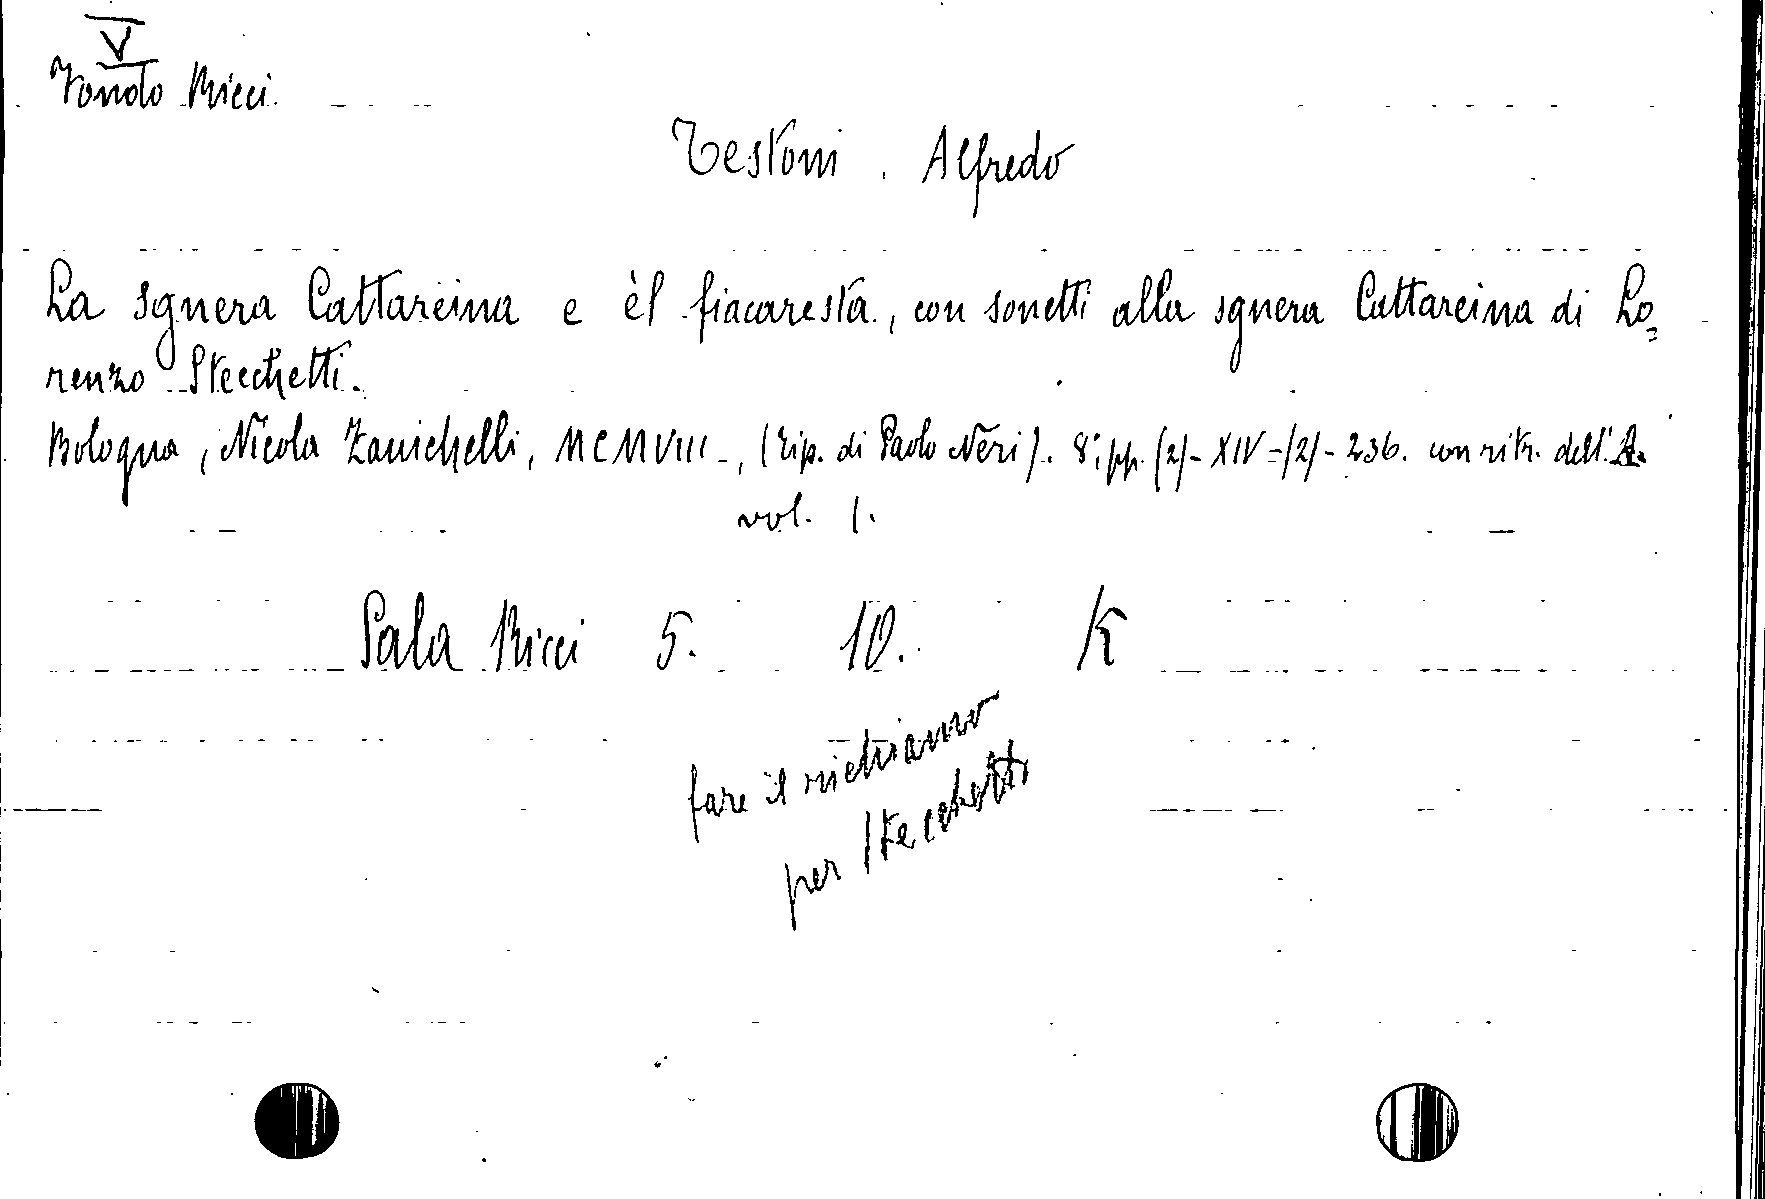 V
Fondo Ricci.
Testoni, Alfredo
La sgnera Cattareina e èl fiacaresta, con sonetti alla sgnera Cattareina di Lo=
renzo Stecchetti.
Bologna, Nicola Zanichelli, MCMVIII-, (tip. di Paolo Neri). 8°, pp. (2)-XIV-(2)-236. con ritr. dell'A.
vol. 1.
Sala Ricci 5. 10. K
fare il richiamo
per Stecchetti